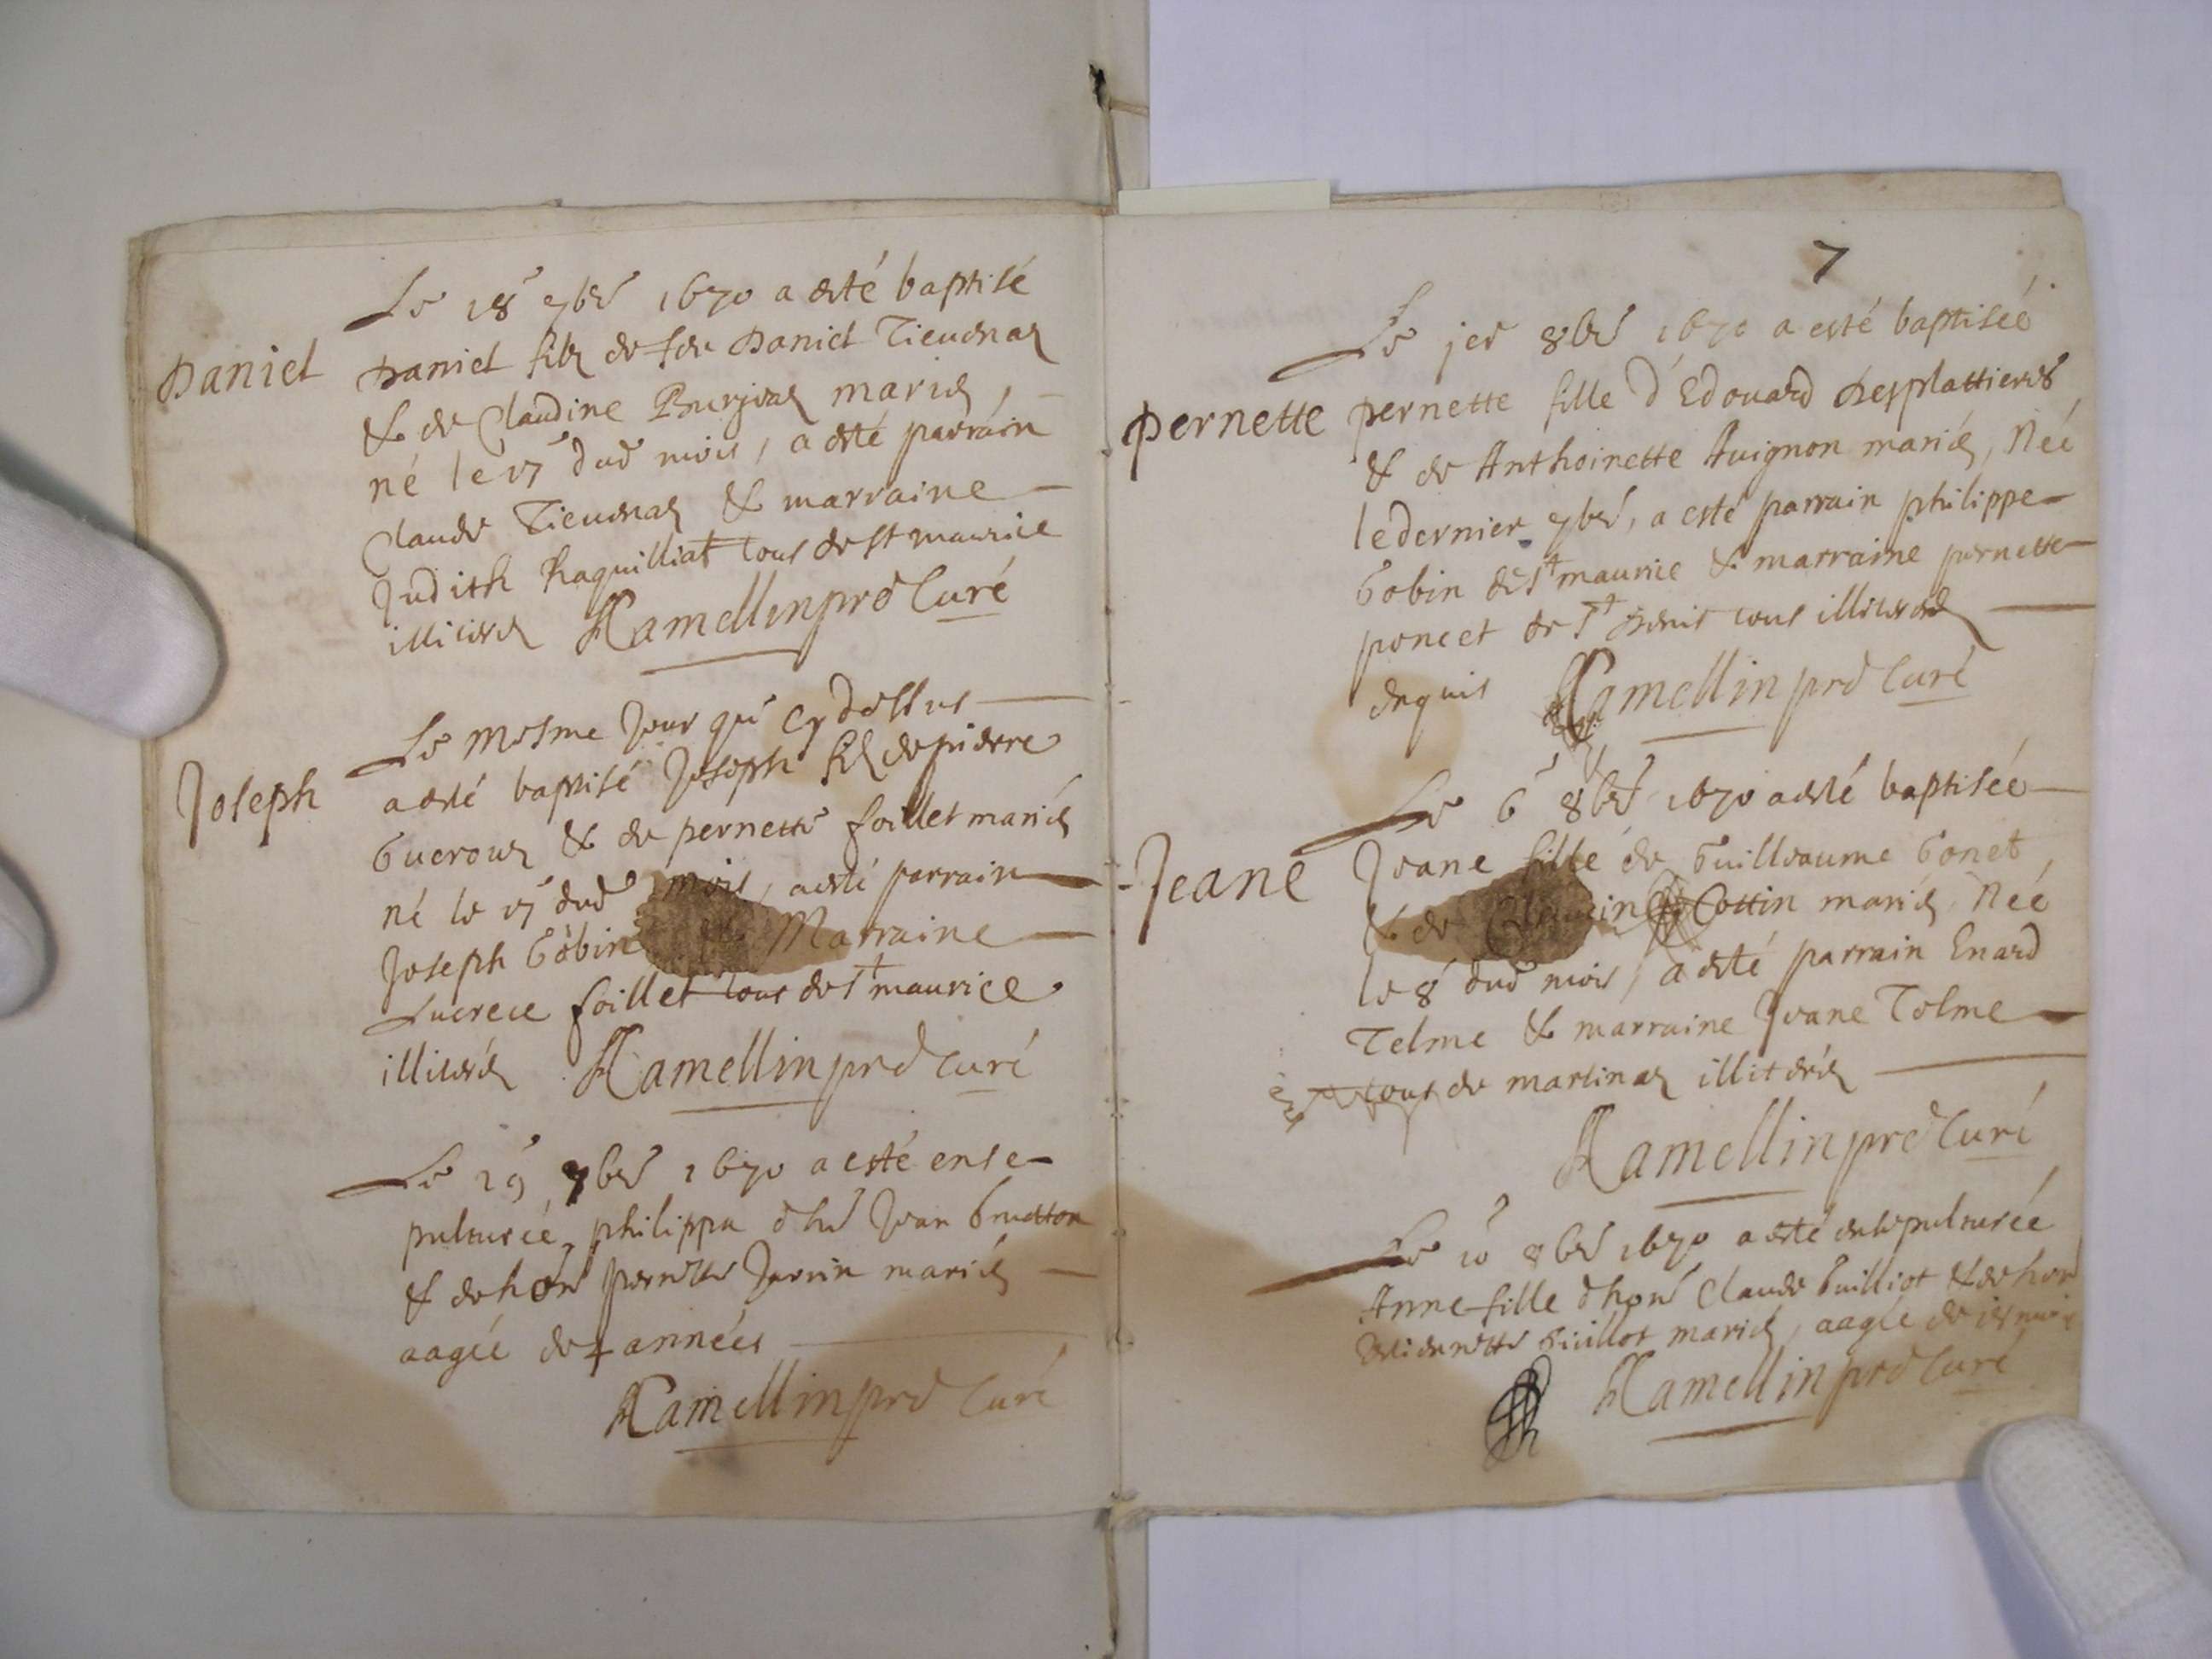 Le 18e 7bre 1670 a esté baptisé
Daniel
Daniel filz de feu Daniel Tievenaz
& de Claudine mariés,
né le 17 dud mois, a esté parrain
Claude Tievenaz & marraine
Judith Raquilliat tous de st maurice
illiterés Hamellin pre Curé
Le mesme Jour que cy dessus
Joseph
a esté baptisé Joseph filz de pierre
Guerouz & de pernette foillet mariés
né le 17 dud mois, a esté parrain
Joseph Gobin & Marraine
Lucrece foillet tous de st maurice
illiterés Hamellin pre Curé
Le 19 7bre 1670 a esté ense-
pulturée philippa d'hon Jean
& de hon pernette Javrin mariés
aagée de 4 années
Hamellin pre Curé
7
Le jer 8bre 1670 a esté baptisée
pernette
pernette fille d'Edouard Desplattieres
& de Anthoinette Avignon mariés, Née
le dernier 7bre, a esté parrain philippe
Gobin de st maurice & marraine pernette
poncet de st Denis tous illiterés
enquis Hamellin pre Curé
Le 6e 8bre 1670 a esté baptisée
Jeane
Jeane fille de Guilleaume Gonet
& de Cottin mariés, Née
le 8 dud mois, a esté parrain Enard
Telme & marraine Jeane Telme
tous de martinaz illiterés
Hamellin pre Curé
Le 10 8bre 1670 a esté ensepulturée
Anne fille d'hon Claude Guilliot & de hon
Guillot mariés, aagée de mois
Hamellin pre Curé